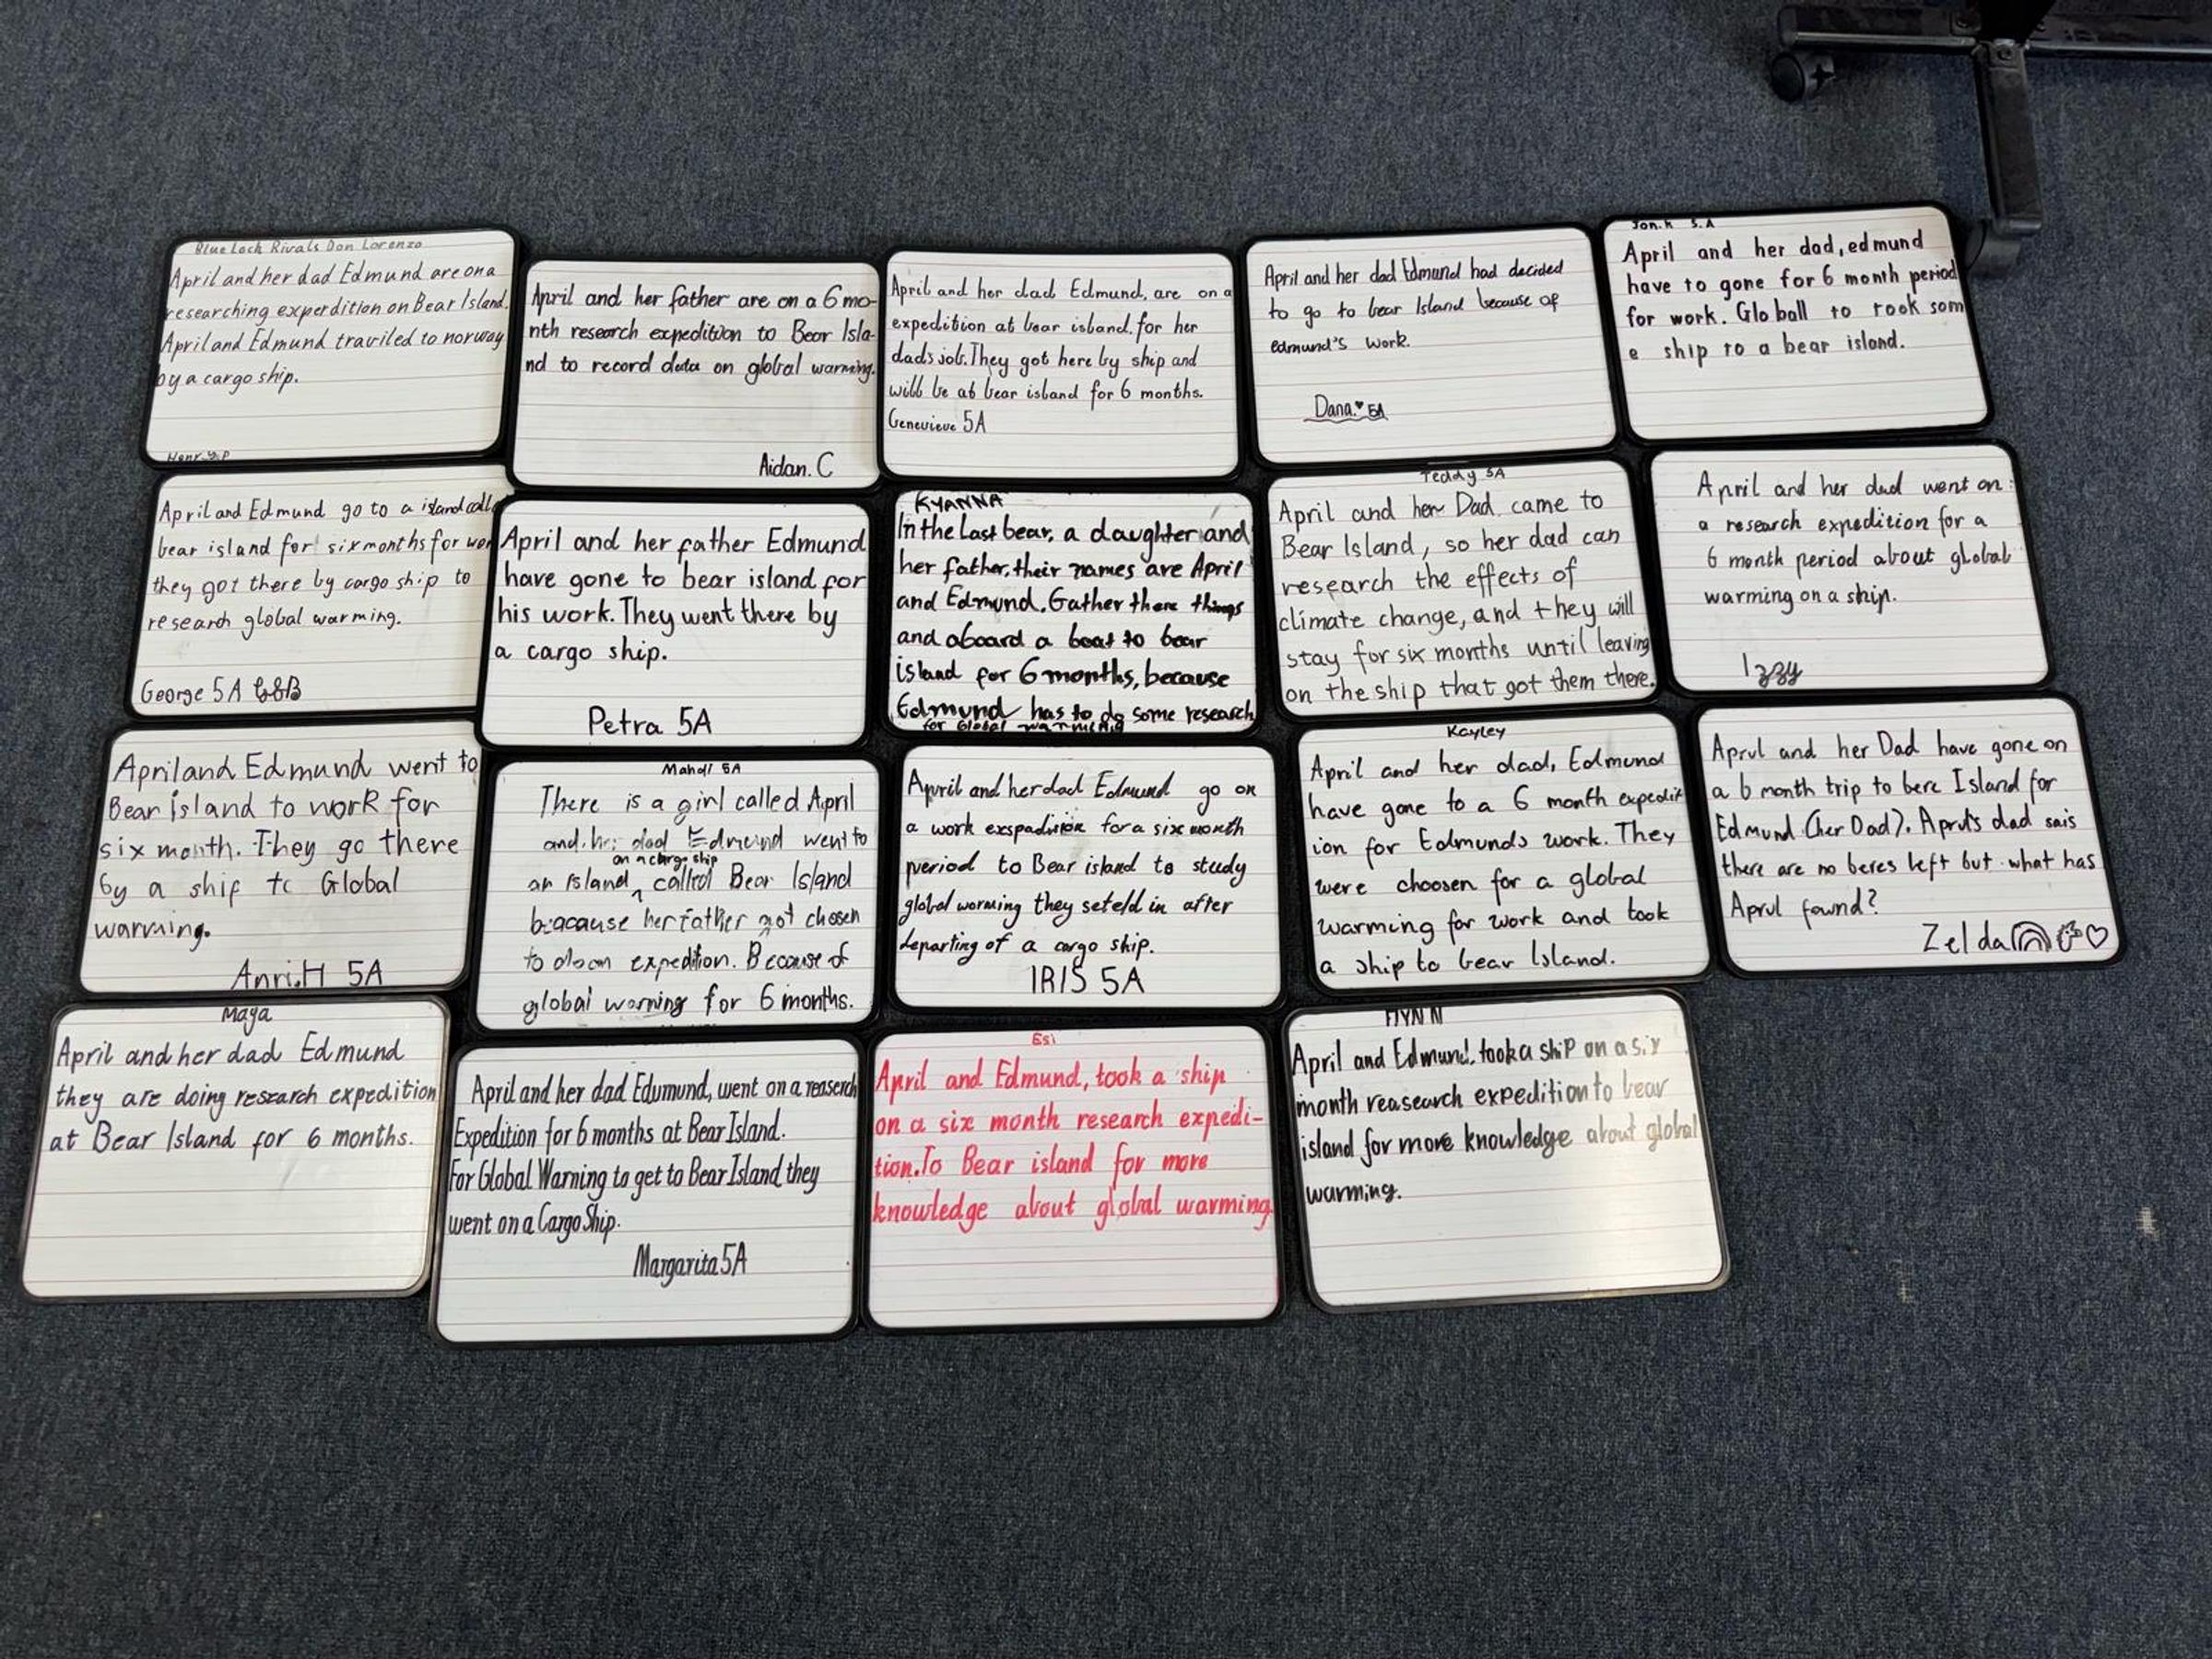 Blue Lock Rivals Don Lorenzo
April and her dad Edmund are on a
researching experdition on Bear Island.
April and Edmund traviled to norway
by a cargo ship.
Henry.P
April and her father are on a 6 mo-
nth research expedition to Bear Isla-
nd to record data on global warming.
Aidan. C
April and her dad Edmund, are on a
expedition at bear island. for her
dad's job. They got here by ship and
will be at bear island for 6 months.
Genevieve 5A
April and her dad Edmund had decided
to go to bear Island because of
edmund's work.
Dana.♥ 5A
Jon.K 5.A
April and her dad, edmund
have to gone for 6 month period
for work. Globall to took som
e ship to a bear island.
April and Edmund go to a island call
bear island for six months for wor
they got there by cargo ship to
research global warming.
George 5A G&B
April and her father Edmund
have gone to bear island for
his work. They went there by
a cargo ship.
Petra 5A
KYANNA
In the Last bear, a daughter and
her father, their names are April
and Edmund. Gather there things
and aboard a boat to bear
island for 6 months, because
Edmund has to do some research
for Global warming
Teddy 5A
April and her Dad came to
Bear Island, so her dad can
research the effects of
climate change, and they will
stay for six months until leaving
on the ship that got them there.
April and her dad went on
a research expedition for a
6 month period about global
warming on a ship.
Izzy
April and Edmund went to
Bear island to work for
six month. They go there
by a ship to Global
warming.
Anri.H 5A
Mahdi 5A
There is a girl called April
and her dad Edmund went to
on a cargo ship
an Island called Bear Island
beacause her father got chosen
to do an expedition. Because of
global warning for 6 months.
April and her dad Edmund go on
a work exspadision for a six month
period to Bear island to study
global worming they seteld in after
departing of a cargo ship.
IRIS 5A
Kayley
April and her dad, Edmund
have gone to a 6 month expedit
ion for Edmunds work. They
were choosen for a global
warming for work and took
a ship to bear Island.
Aprul and her Dad have gone on
a 6 month trip to bere Island for
Edmund (her Dad). Aprul's dad sais
there are no beres left but what has
Aprul fawnd?
Zelda
Maya
April and her dad Edmund
they are doing research expedition
at Bear Island for 6 months.
April and her dad Edumund, went on a reaserch
Expedition for 6 months at Bear Island.
For Global Warning to get to Bear Island they
went on a Cargo Ship.
Margarita 5A
Esi
April and Edmund, took a ship
on a six month research expedi-
tion. To Bear island for more
knowledge about global warming.
FlYNN N
April and Edmund. took a ship on a six
month reasearch expedition to bear
island for more knowledge about global
warming.